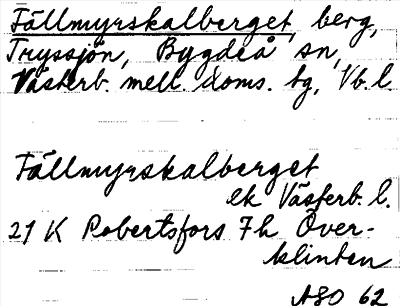 Fällmyrskalberget, berg,
Tryssjön, Bygdeå sn,
Västerb. mell. doms. tg, Vb. l.
Fällmyrskalberget
ek Västerb. l.
21 K Robertsfors 7h Över-
klinten
ASO 62